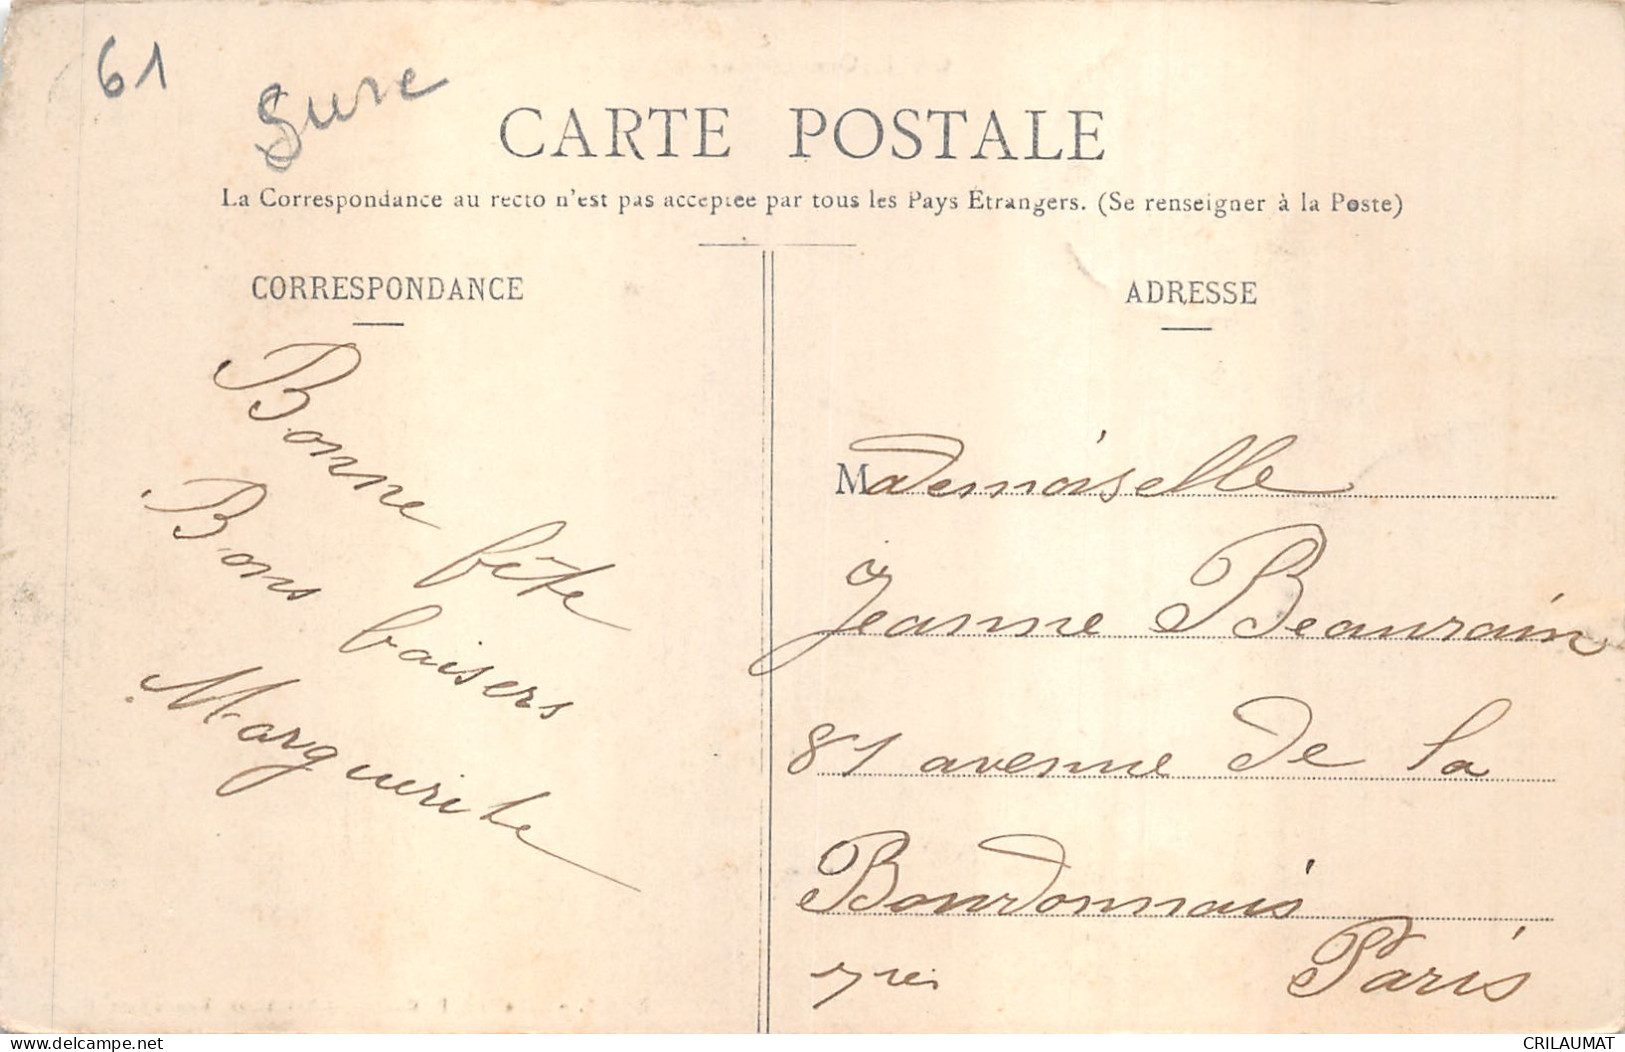 61
Sure
CARTE POSTALE
La Correspondance au recto n'est pas acceptée par tous les Pays Étrangers. (Se renseigner à la Poste)
CORRESPONDANCE
Bonne fête
Bons baisers
Marguerite
ADRESSE
Mademoiselle
Jeanne Beaurain
81 avenue de la
Bourdonnais
Paris
www.delcampe.net
CRILAUMAT